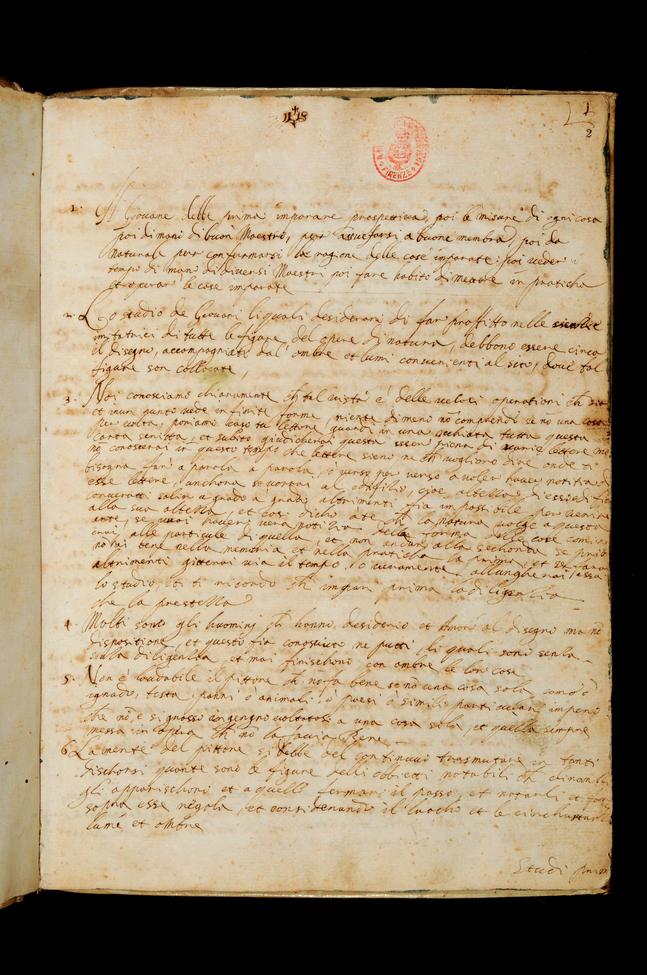 IHS
1
2
FIRENZE
1. Il Giovane delle prima imparare prospectiva, poi le misure di ogni cosa
poi di mani di buon Maestro, per assuefarsi a buone membra, poi da
Naturale per confermarsi la ragione delle cose imparate: poi veder
tempo di mani di diversi Maestri poi fare habito di mettere in praticha
et operar le cose imparate
2. Lo studio de Giovani li quali desiderano di far proffitto nelle
imitatrici di tutte le figure del opere di natura, debbono essere circa
il disegno, accompagniato dal' ombre et lumi convenienti al sito, dove tal
figure son collocate,
3. Noi conosciamo chiaramente ch tal vista è delle veloci operationi ch sia
et in un punto vede infinite forme nientedimeno nō comprende se nō una cosa
per volta, poniamo caso tu lettore guardi in una occhiata tutta questa
carta scritta, et subito giudicherai questa esser piena di varie lettere ma
nō conoscerai in questo tempo che lettere sieno ne ch vogliono dire onde ti
bisogna fare a parola a parola, o verso per verso a voler haver notitia di
esse lettere, anchora se vorrai al edificio, cioè altezza di esso
converratti salir a grado a grado altrimenti fia impossibile pervenire
alla sua altezza, et così dicho a te ch la natura volge a questa
arte, se vuoi haver vera notitia della forma delle cose comin
cerai, alle particule di quella, et non andare alla sechonda se prima
nō hai bene nella memoria et nella praticha la prima, et se farai
altrimenti gitterai via il tempo, o veramente allungherai assai
lo studio et ti ricordo ch impari prima la diligentia
che la prestezza
4. Molti sono gli huomini ch hanno desiderio et Amore al disegno ma nō
dispositione, et questo fia conosciuto ne putti, li quali sono senza
diligentia, et mai finischono con ombre le lor cose
5. Non è laudabile il pittore ch nō fa bene se nō una cosa sola come è
ignudo, testa, panni o animali, o paesi o simili particulari, imperò
che nō è sì grosso ingegno voltatosi a una cosa sola, et quella sempre
messa in opera ch nō la faccia Bene
6. La mente del pittore si debbe del continuo trasmutare in tanti
dischorsi quante sono le figure delli obietti notabili ch dinanzi
gli apparischono et a quelle fermare il passo, et notarli et far
sopra esse regola, et considerando il luocho et le circhunstanze
lume et ombre
Studi